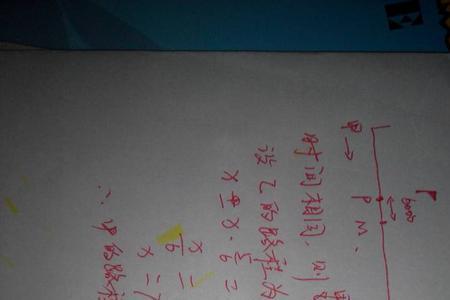 甲 → P M.
时间相同. 则
设乙的路程为
x · 5/6 =
x/6 =
x = 7
∴ 甲的路程